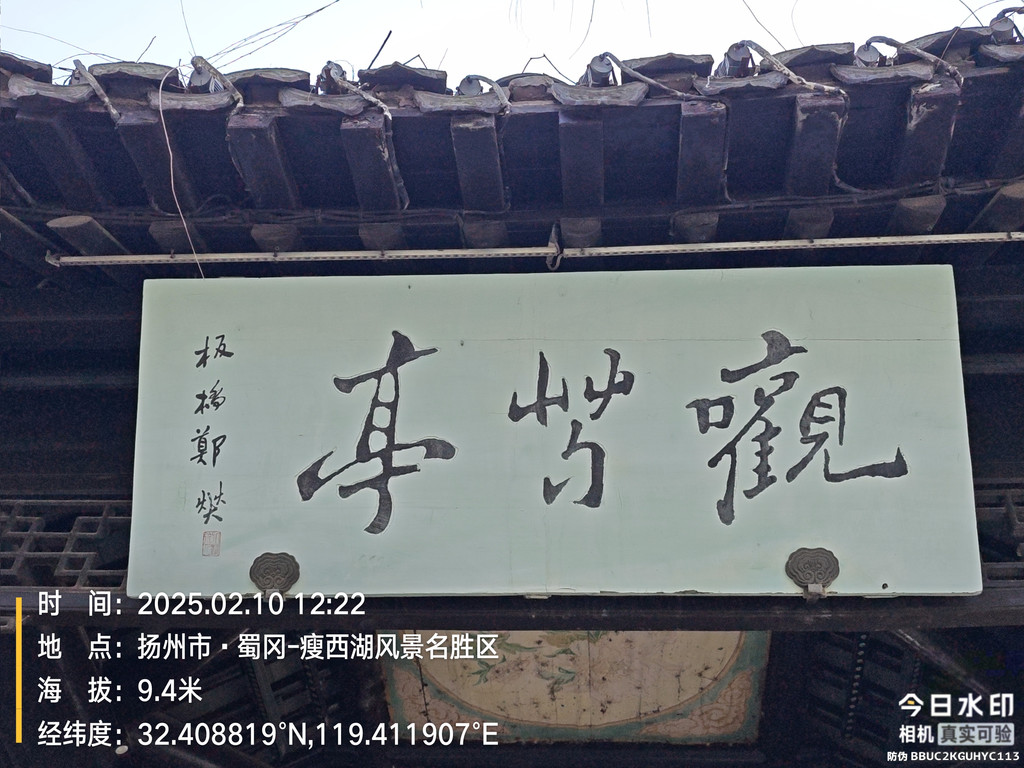 觀芍亭
板橋鄭燮
时 间：2025.02.10 12:22
地 点：扬州市·蜀冈-瘦西湖风景名胜区
海 拔：9.4米
经纬度：32.408819°N,119.411907°E
今日水印
相机 真实可验
防伪 BBUC2KGUHYC113